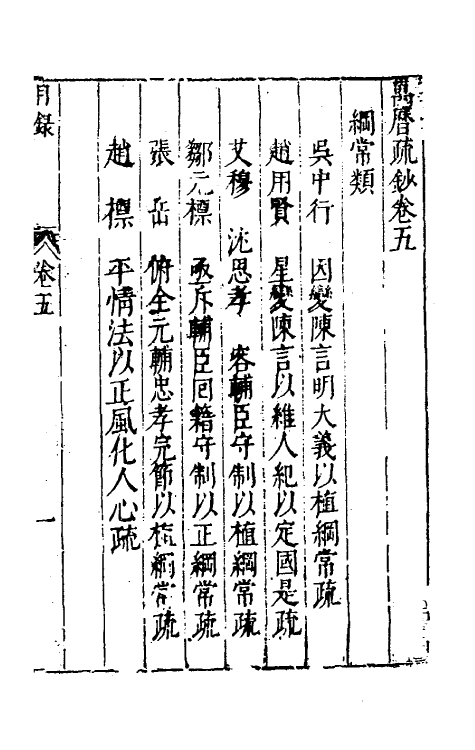 萬曆疏鈔卷五
綱常類
吳中行 因變陳言明大義以植綱常疏
趙用賢 星變陳言以維人紀以定國是疏
艾穆 沈思孝 容輔臣守制以植綱常疏
鄒元標 亟斥輔臣回籍守制以正綱常疏
張岳 俯全元輔忠孝完節以植綱常疏
趙標 平情法以正風化人心疏
目錄 卷五 一